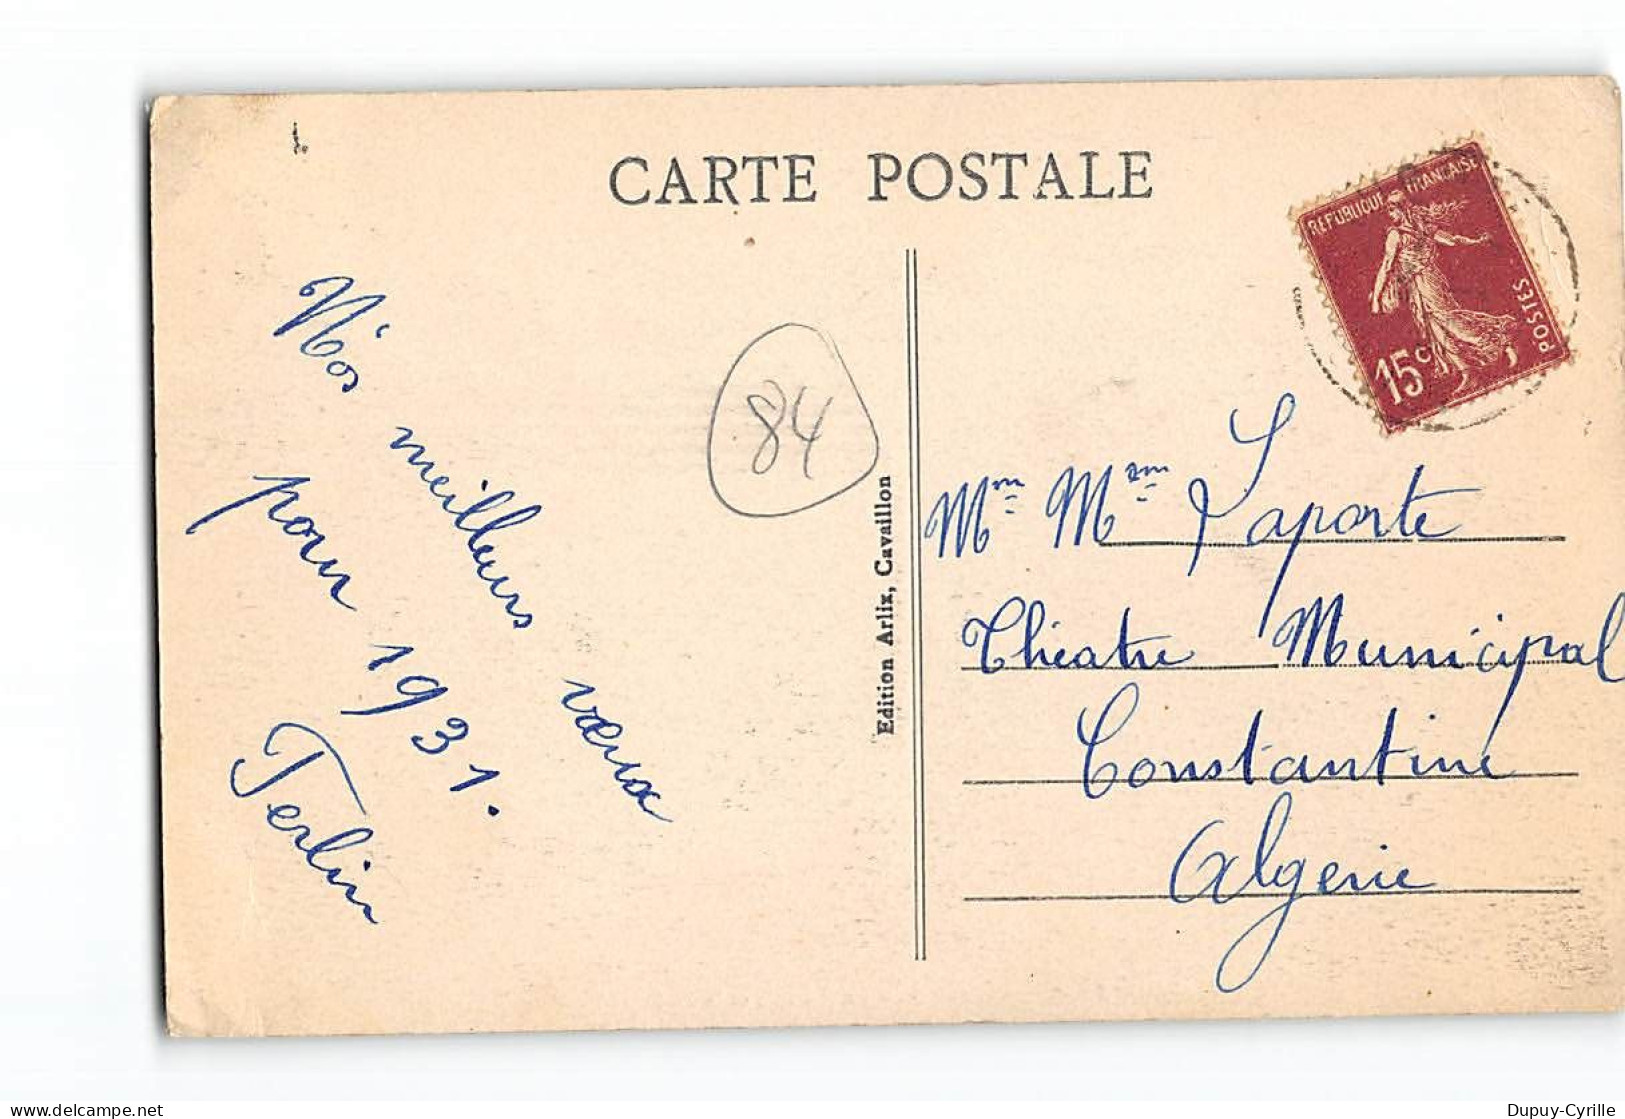 CARTE POSTALE
REPUBLIQUE FRANÇAISE
POSTES
15c
Nos meilleurs vœux
pour 1931.
Terlin
84
Edition Arlix, Cavaillon
Mm Mem Laporte
Théatre Municipal
Constantine
Algerie
www.delcampe.net
Dupuy-Cyrille